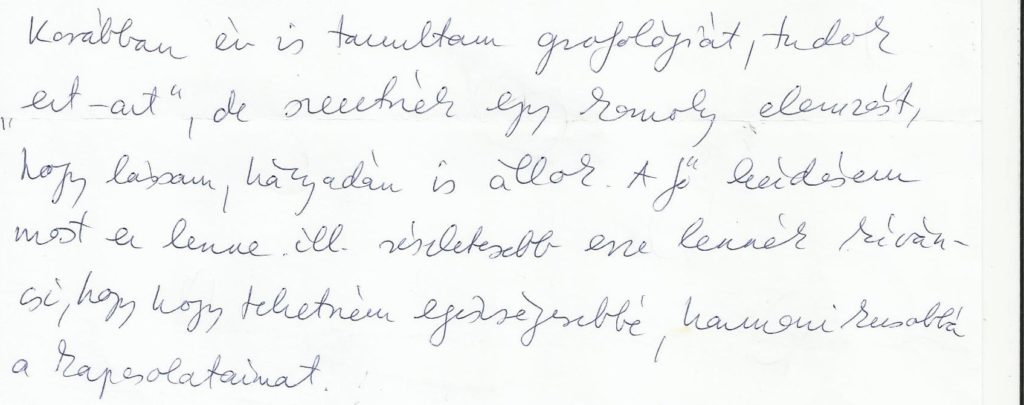 Korábban én is tanultam grafológiát, tudok
„ezt-azt", de szeretnék egy komoly elemzést,
hogy lássam, hányadán is állok. A fő kérdésem
most ez lenne ill. részletesebb erre lennék kíván-
csi, hogy hogy tehetném egészségesebbé, harmonikusabbá
a kapcsolataimat.